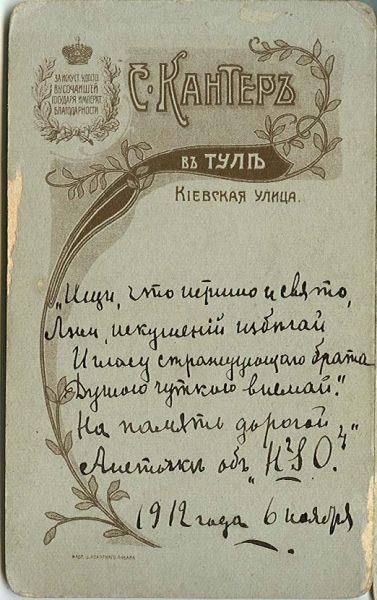 ЗА ИСКУСТ. УДОСТО
ВЫСОЧАЙШЕЙ
ГОСУДАРЯ ИМПЕРАТ.
БЛАГОДАРНОСТИ
С. КАНТЕРЪ
ВЪ ТУЛѢ
КІЕВСКАЯ УЛИЦА.
„Ищи, что истинно и свято,
Лжи, искушеній избѣгай
И гласу страждущаго брата
Душою чуткою внемай."
На память дорогой
отъ
1912 года 6 ноября